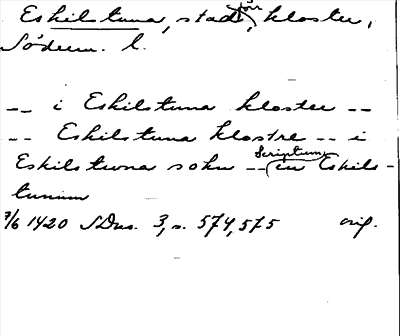 Eskilstuna, stad, för kloster,
Söderm. l.
-- i Eskilstuna kloster --
-- Eskilstuna klostre -- i
Eskilstuna sokn -- Scriptum in Eskils-
tunum
7/6 1420 SDns. 3, s. 574, 575 orig.